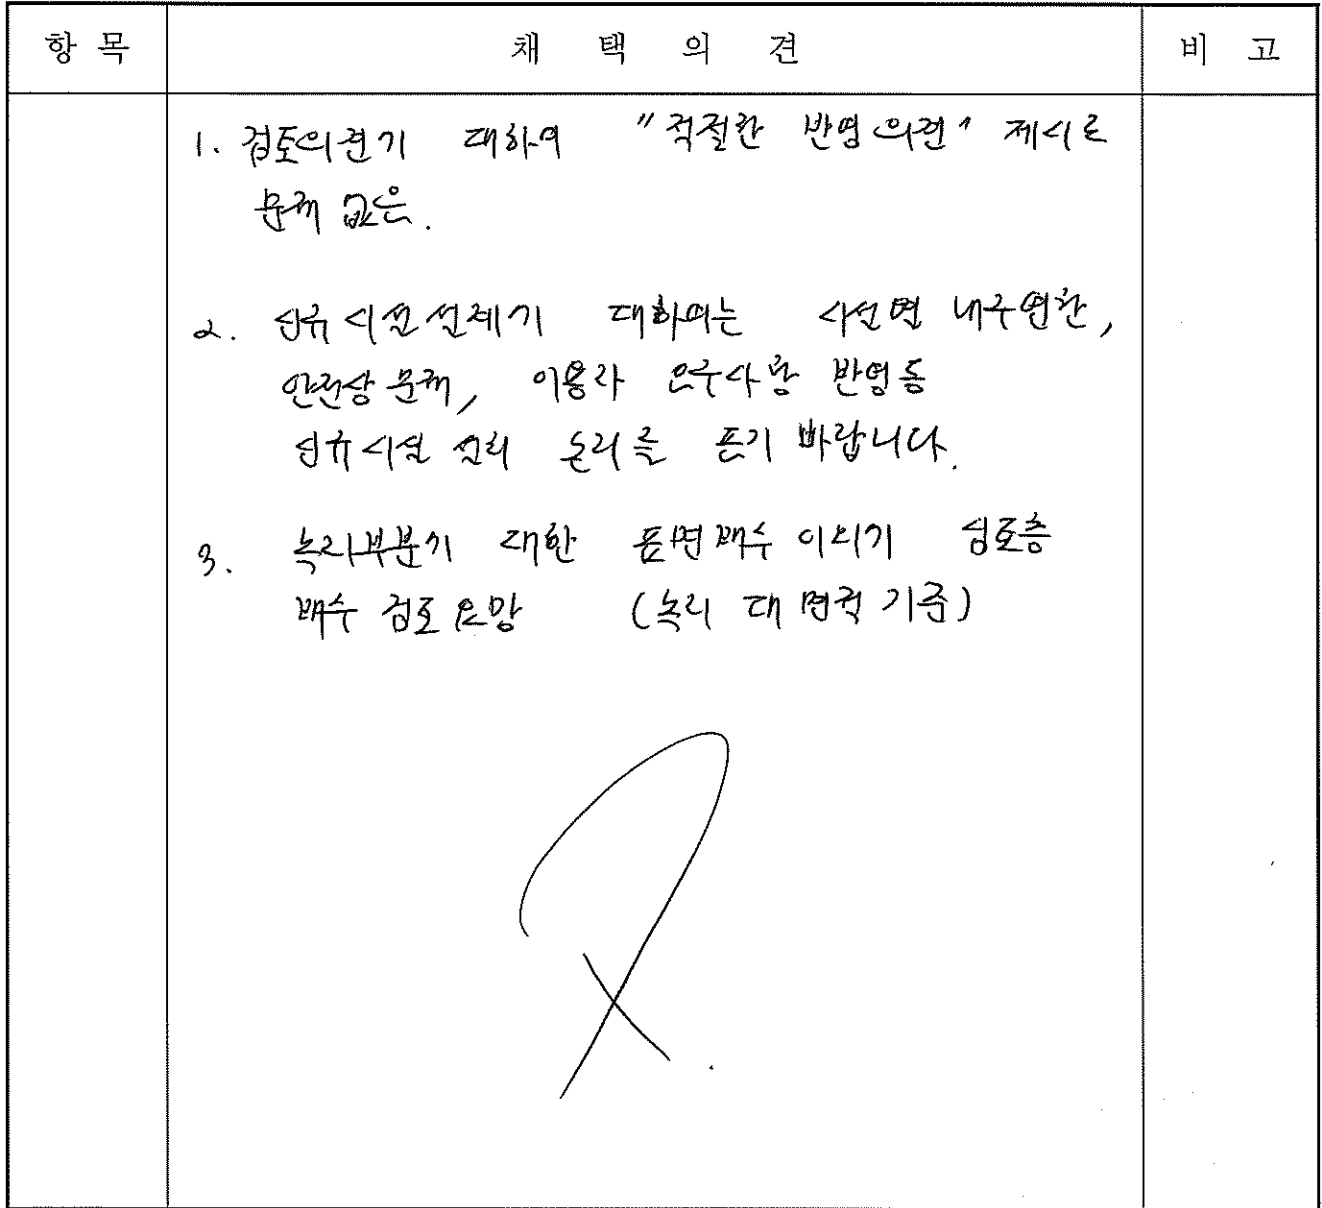 항 목 채 택 의 견 비 고
1. 검토의견에 대하여 "적절한 반영의견" 제시로
문제 없음.
2. 신규시설설계에 대하여는 시설별 내구연한,
안전상 문제, 이용자 요구사항 반영 등
신규시설 설치 논리를 돕기 바랍니다.
3. 녹지부분에 대한 표면배수 이외에 심토층
배수 검토 요망 (녹지 대면적 기준)